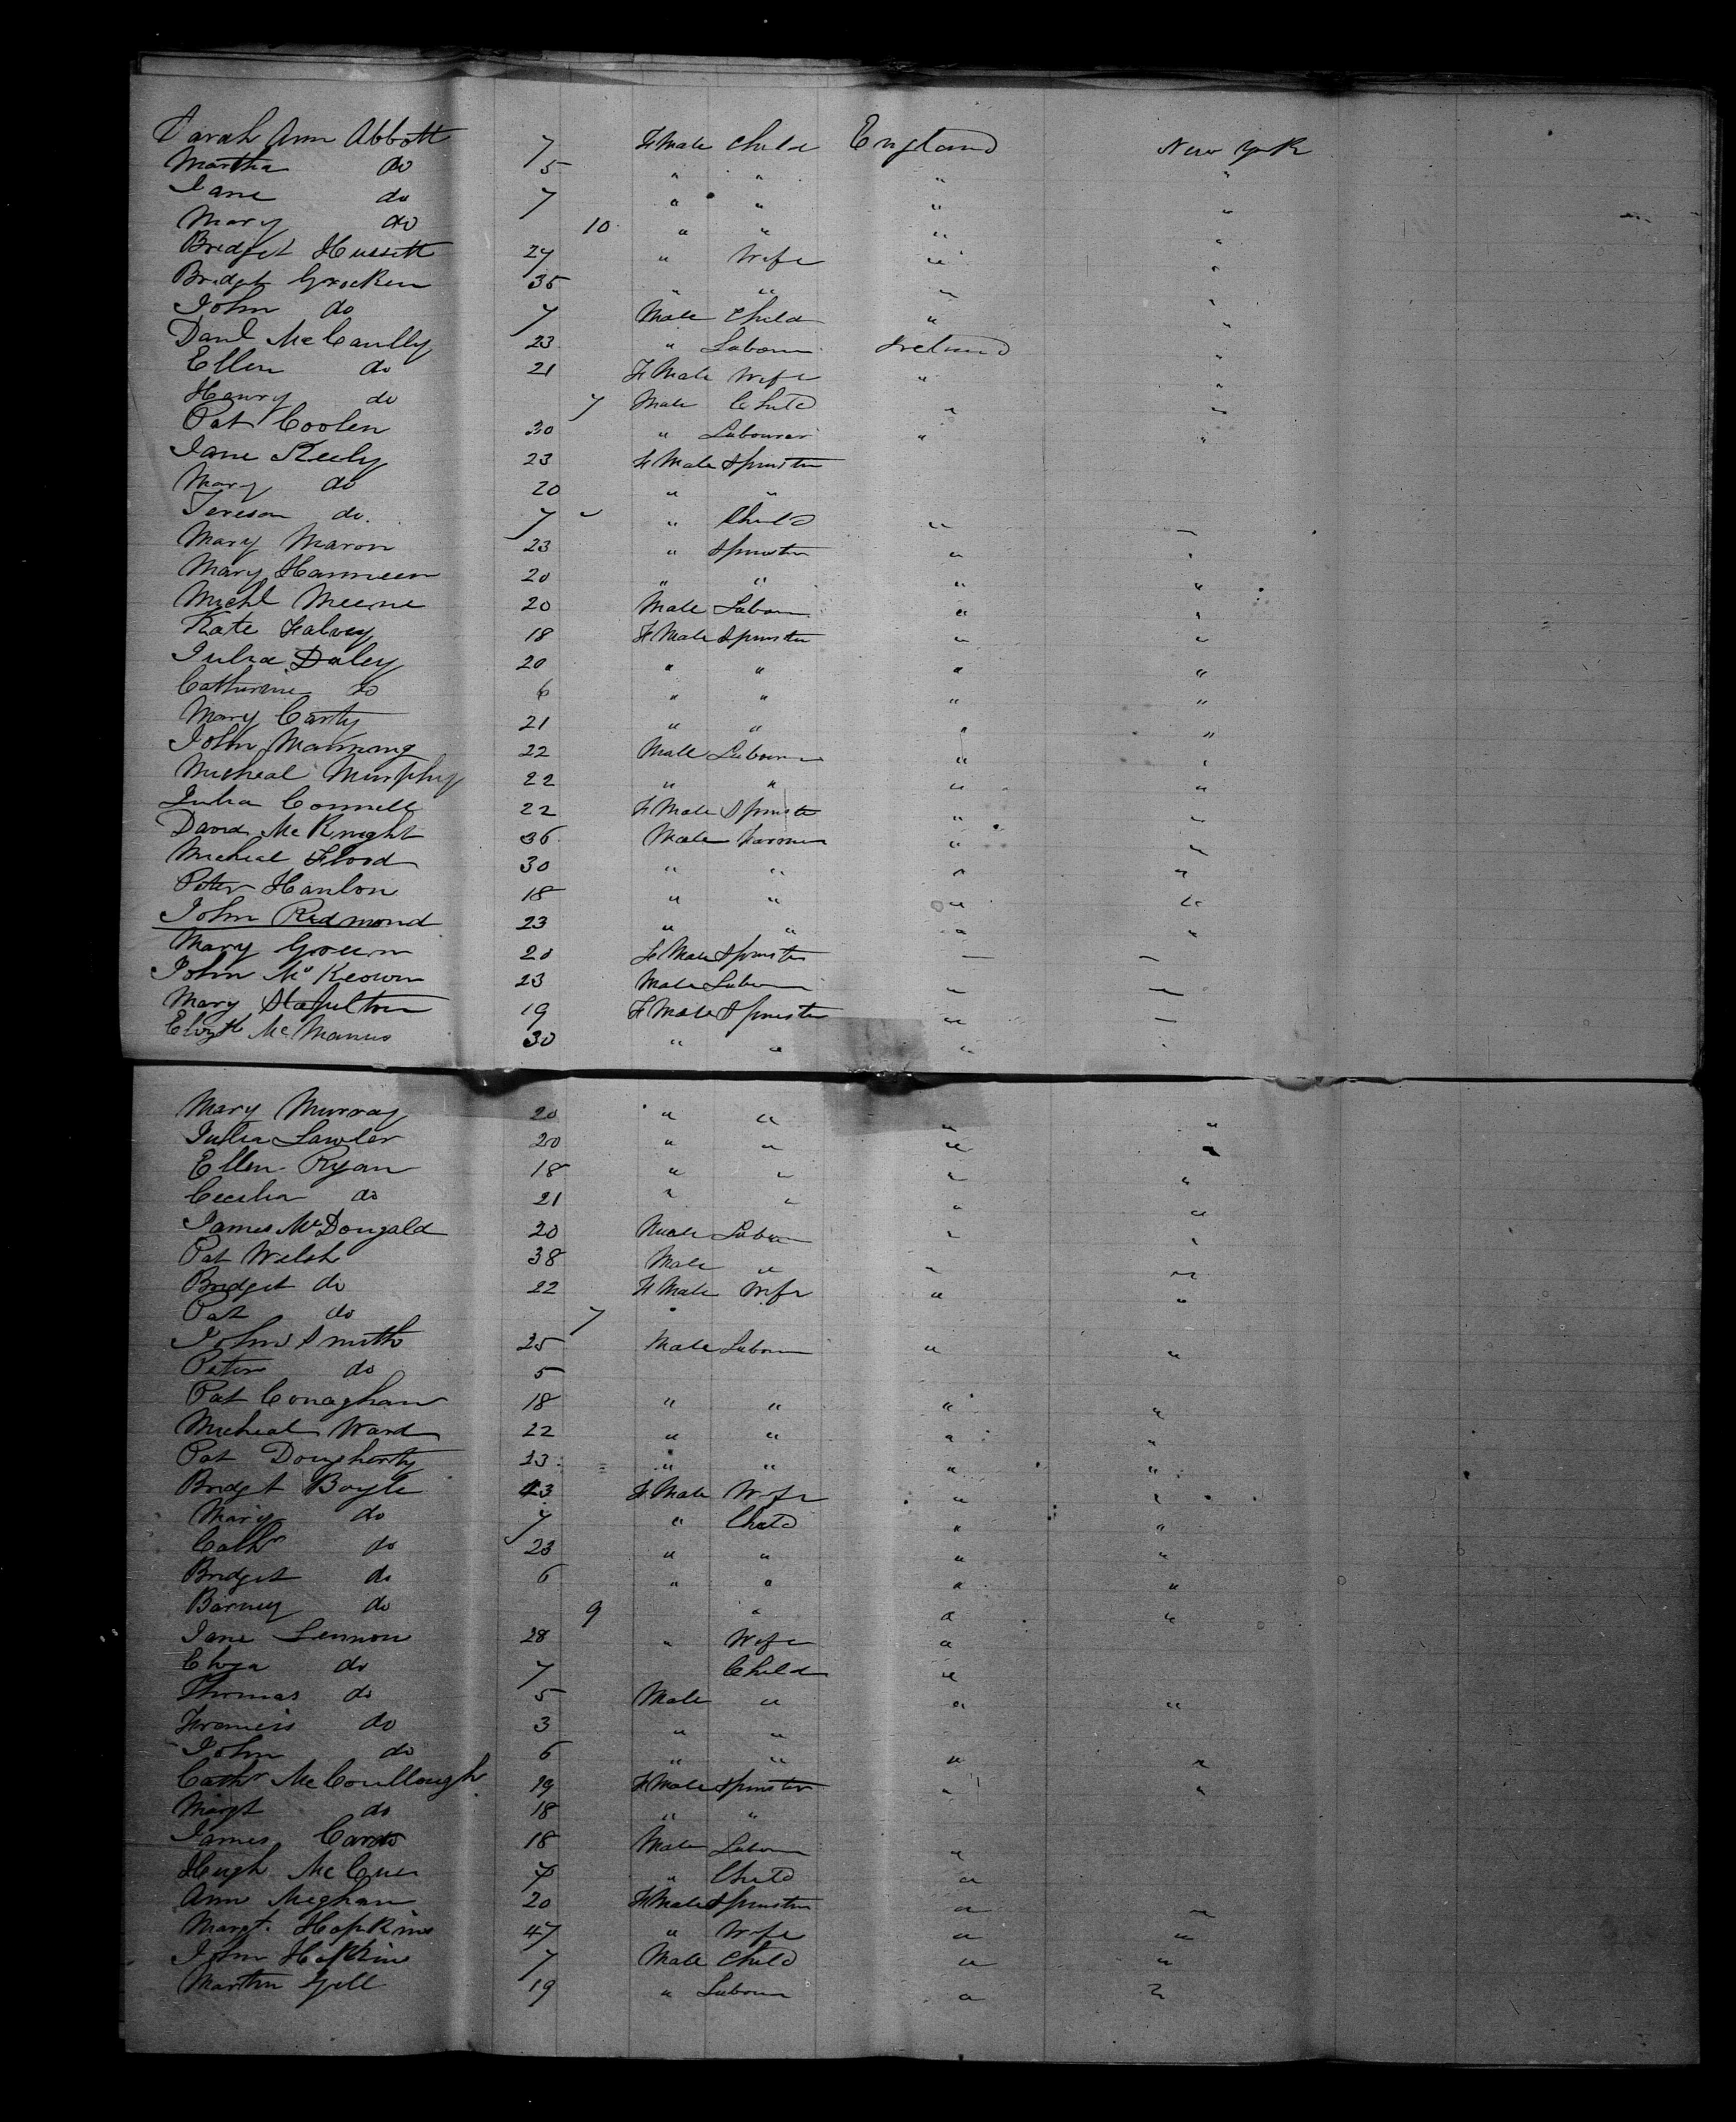 Sarah Ann Abbott 7 F Male Child England New York
Martha do 5 " " " "
Jane do 7 " " " "
Mary do 10 " " " "
Bridget Hussett 27 " Wife " "
Bridget 35 " " " "
John do 7 Male Child " "
Danl McCaully 23 " Labour Ireland "
Ellen do 21 F Male Wife " "
Henry do 7 Male Child " "
Pat Coolen 30 " Labourer " "
Jane Keely 23 F Male Spinster
Mary do 20 " "
Tereson do. 7 " Child " "
Mary Maron 23 " Spinster " "
Mary Hanneen 20 " " " "
Michl Meene 20 Male Labour " "
Kate Falvey 18 F Male Spinster " "
Julia Daley 20 " " " "
Catherine do 6 " " " "
Mary Carty 21 " " " "
John Manning 22 Male Labour " "
Micheal Murphy 22 " " " "
Julia Connell 22 F Male Spinster " "
David McKnight 36 Male Farmer " "
Micheal Flood 30 " " " "
Peter Hanlon 18 " " " "
John Redmond 23 " " " "
Mary 20 F Male Spinster " "
John McKeown 23 Male Labour " "
Mary Stapulton 19 F Male Spinster " "
Elizth McManus 30 " " " "
Mary Murray 20 " " " "
Julia Lawler 20 " " " "
Ellen Ryan 18 " " " "
Cecelia do 21 " " " "
James McDougald 20 Male Labour " "
Pat Welsh 38 Male " " "
Bridget do 22 F Male Wife " "
Pat do 7 "
John Smith 25 Male Labour " "
Peter do 5
Pat Conaghan 18 " " " "
Micheal Ward 22 " " " "
Pat Dougherty 23 " " " "
Bridgt Boyle 43 F Male Wife " "
Mary do 7 " Child " "
Cathr do 23 " " " "
Bridget do 6 " " " "
Barney do 9 " " "
Jane Lennon 28 " Wife "
Eliza do 7 Child "
Thomas do 5 Male " " "
Francis do 3 " "
John do 6 " " " "
Cathr McCoullough 19 F Male Spinster " "
Margt do 18 " "
James 18 Male Labour "
Hugh McCue 7 " Child "
Ann Meghan 20 F Male Spinster " "
Margt. Hopkins 47 " Wife " "
John Hopkins 7 Male Child " "
Martin Gill 19 " Labour " "